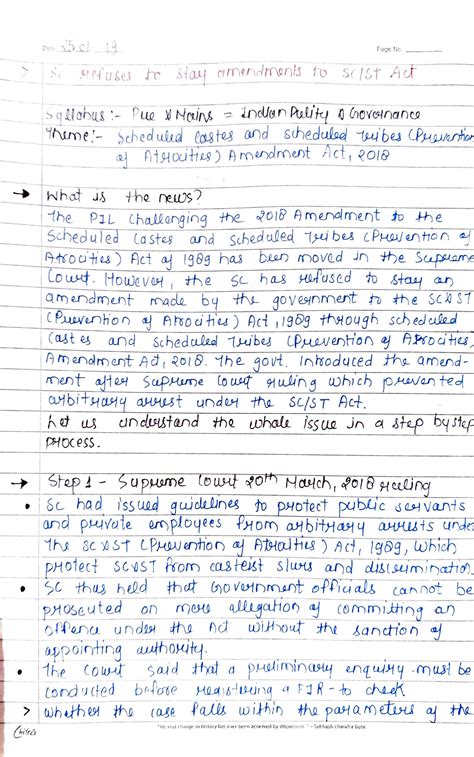 Date 25.01.19 Page No.
> SC refuses to stay amendments to SC/ST Act
Syllabus :- Pre & Mains = Indian Polity & Governance
Theme :- Scheduled Castes and Scheduled Tribes (Prevention
of Atrocities) Amendment Act, 2018
→ What is the news?
The PIL challenging the 2018 Amendment to the
Scheduled Castes and Scheduled Tribes (Prevention of
Atrocities) Act of 1989 has been moved in the Supreme
Court. However, the SC has refused to stay an
amendment made by the government to the SC&ST
(Prevention of Atrocities) Act, 1989 through Scheduled
Castes and Scheduled Tribes (Prevention of Atrocities)
Amendment Act, 2018. The govt. Introduced the amend-
ment after Supreme Court ruling which prevented
arbitrary arrest under the SC/ST Act.
Let us understand the whole issue in a step by step
process.
→ Step 1 - Supreme Court 20th March, 2018 ruling
• SC had issued guidelines to protect public servants
and private employees from arbitrary arrests under
The SC&ST (Prevention of Atrocities) Act, 1989, which
protect SC&ST from casteist slurs and discrimination.
• SC thus held that Government officials cannot be
prosecuted on mere allegation of committing an
offence under the Act without the sanction of
appointing authority.
• The Court said that a preliminary enquiry must be
conducted before registering a FIR - to check
> whether the case falls within the parameters of the
"No real change in history has ever been achieved by discussions." - Subhash chandra bose